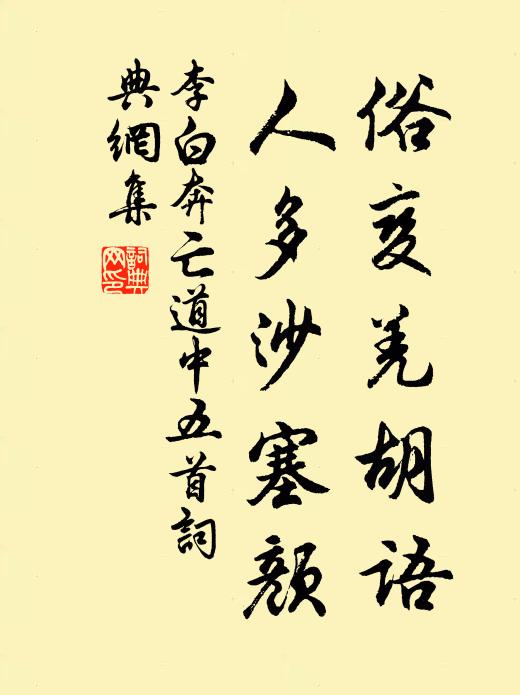 俗变羌胡语
人多沙塞颜
李白奔亡道中五首词
典網集
詞典網印